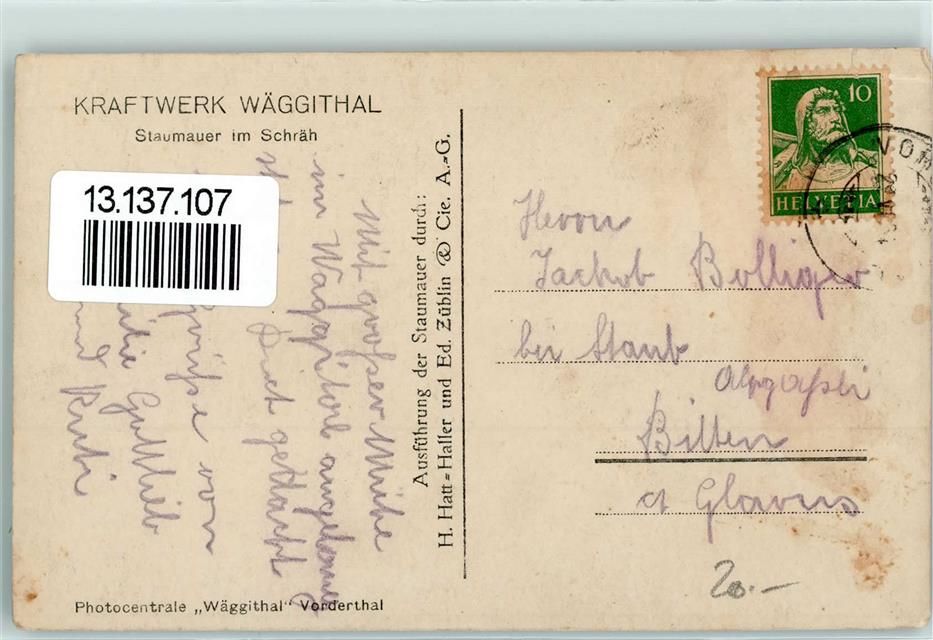 KRAFTWERK WÄGGITHAL
Staumauer im Schräh
13.137.107
Mit großer Mühe
im Wäggital
Euch gedacht
Grüße von
Gottlieb
und Rubi
Ausführung der Staumauer durch:
H. Hatt-Haller und Ed. Züblin & Cie. A.-G.
10
HELVETIA
Herrn
Jackob Bolliger
bei Staub
Bilten
ct Glarus
20.-
Photocentrale „Wäggithal" Vorderthal